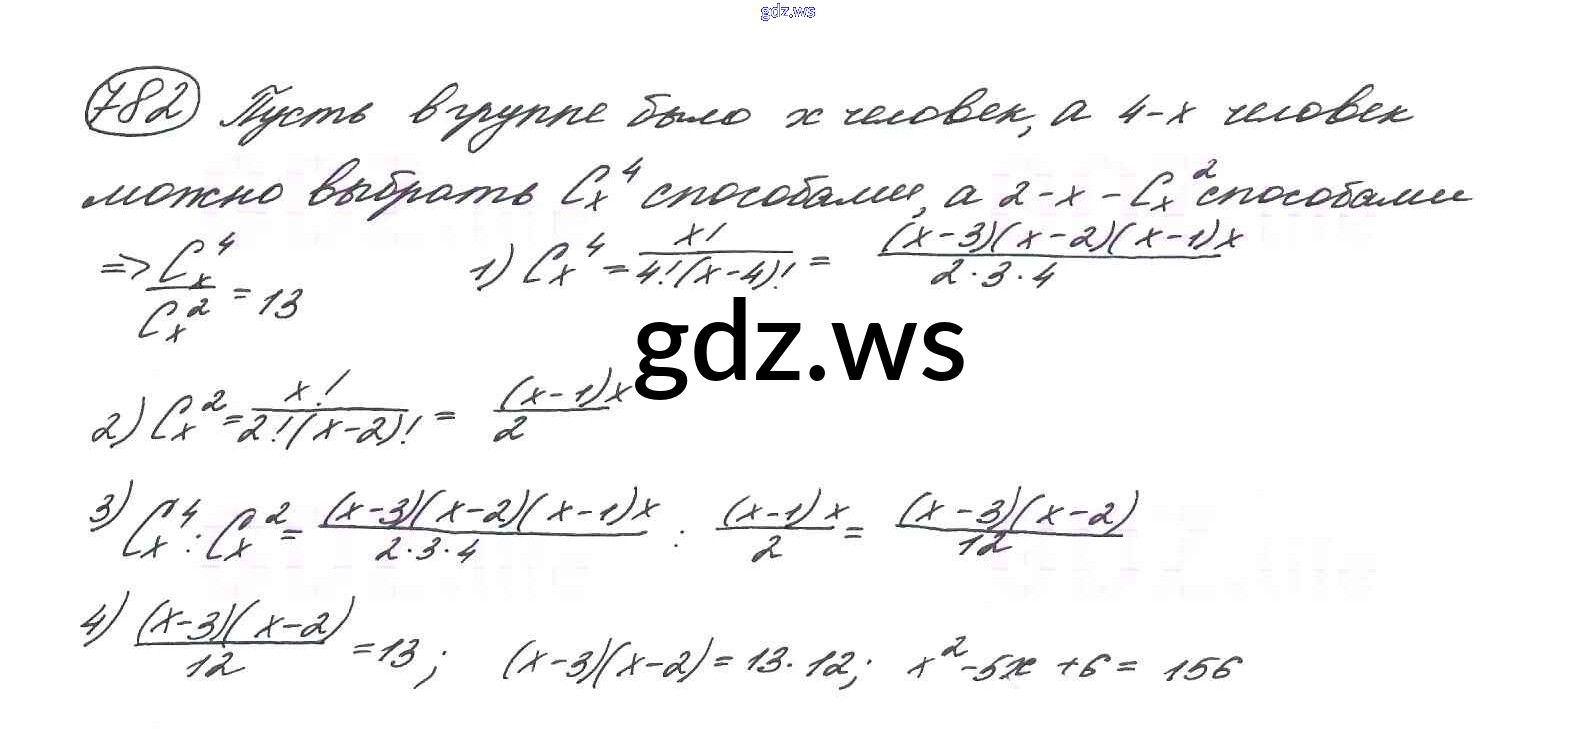 gdz.ws
782 Пусть в группе было x человек, а 4-x человек
можно выбрать C_x^4 способами, а 2-x - C_x^2 способами
=> C_x^4 / C_x^2 = 13 1) C_x^4 = x! / 4!(x-4)! = (x-3)(x-2)(x-1)x / 2·3·4
gdz.ws
2) C_x^2 = x! / 2!(x-2)! = (x-1)x / 2
3) C_x^4 : C_x^2 = (x-3)(x-2)(x-1)x / 2·3·4 : (x-1)x / 2 = (x-3)(x-2) / 12
4) (x-3)(x-2) / 12 = 13; (x-3)(x-2) = 13·12; x^2-5x+6 = 156